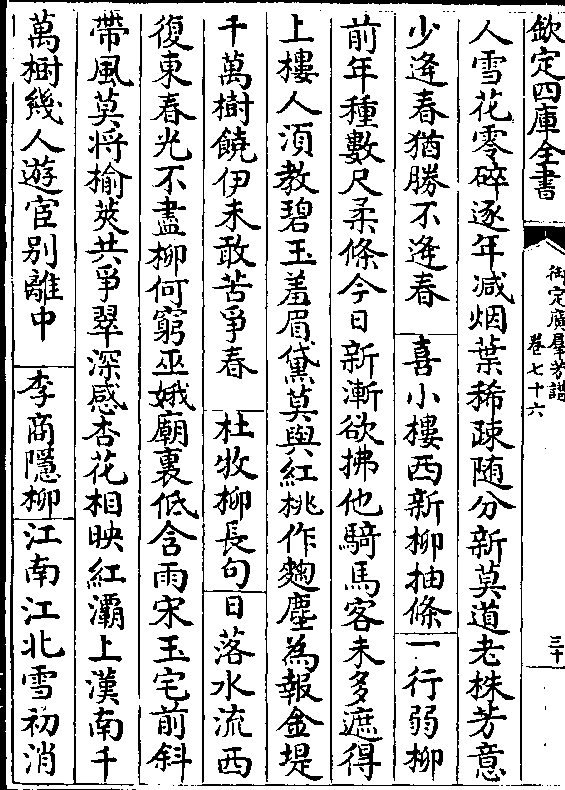 欽定四庫全書
御定廣羣芳譜
卷七十六
三十
人雪花零碎逐年减烟葉稀疎随分新莫道老株芳意
少逢春猶勝不逢春 喜小樓西新柳抽條 一行弱柳
前年種數尺柔條今日新漸欲拂他騎馬客未多遮得
上樓人湏教碧玉羞眉黛莫與紅桃作麴塵為報金堤
千萬樹饒伊未敢苦爭春 杜牧柳長句 日落水流西
復東春光不盡柳何窮巫娥廟裏低含雨宋玉宅前斜
帶風莫将榆莢共爭翠深感杏花相映紅灞上漢南千
萬樹幾人遊宦别離中 李商隱柳 江南江北雪初消